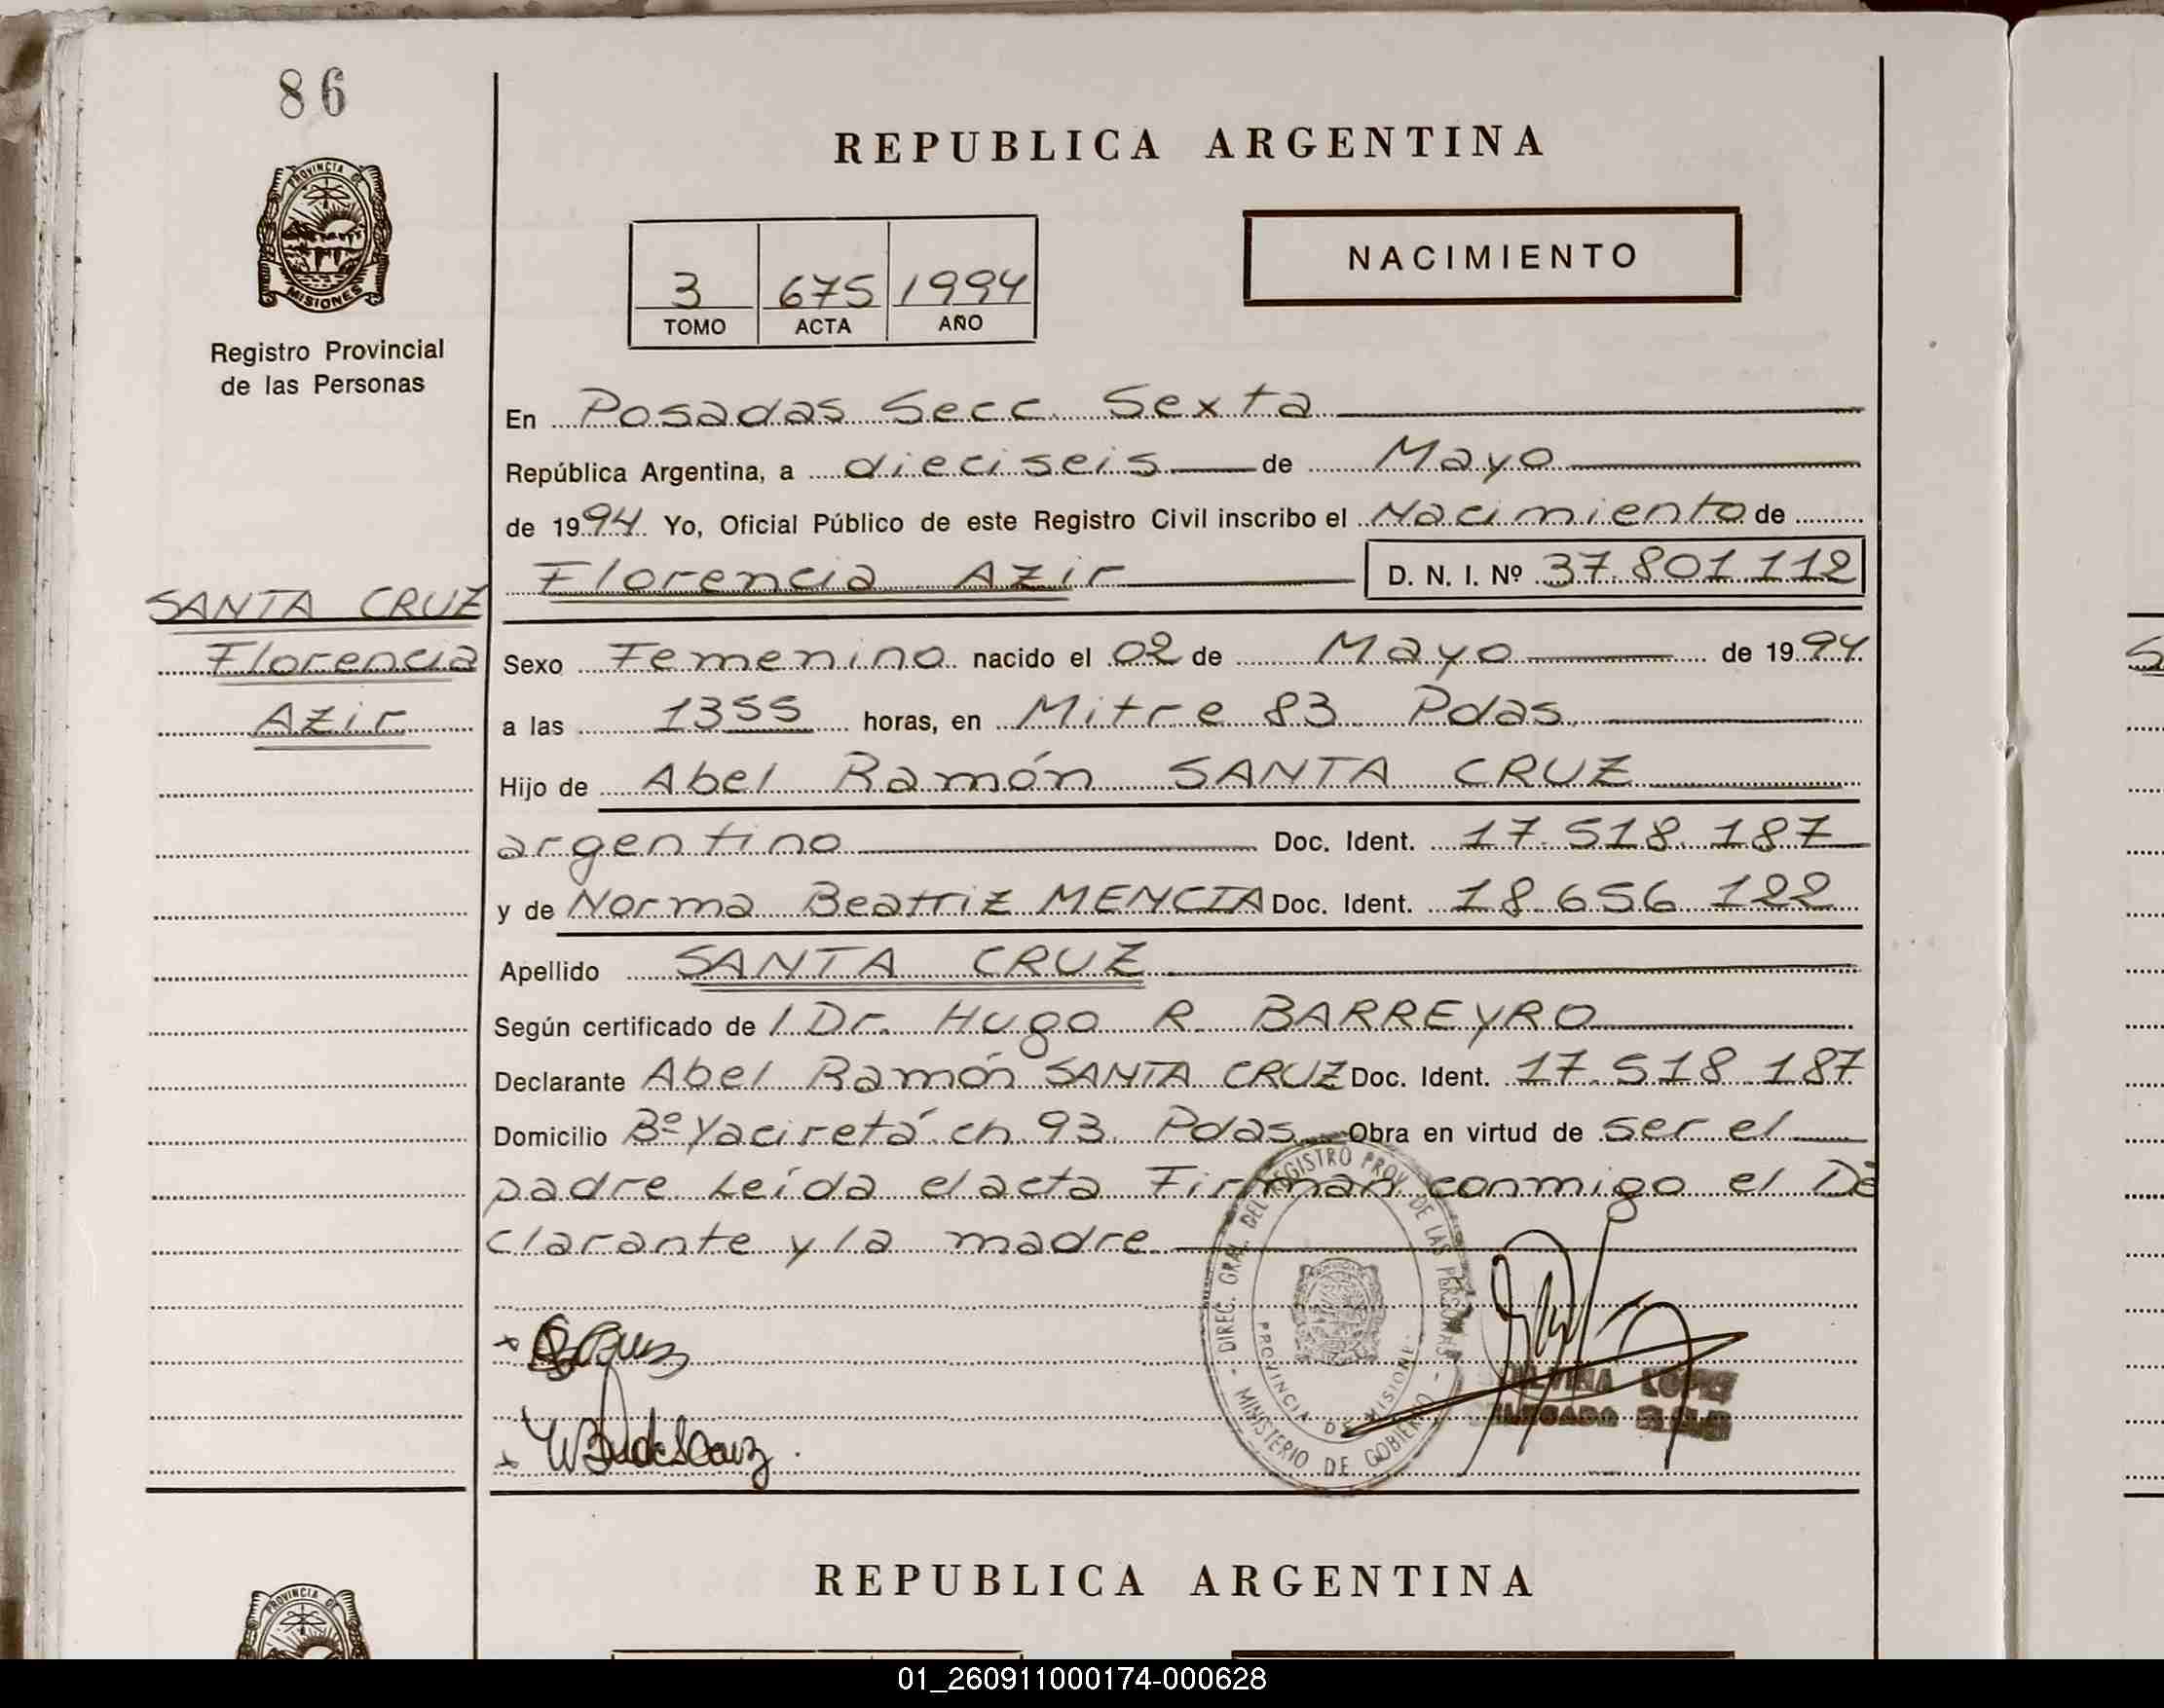 86
REPUBLICA ARGENTINA
PROVINCIA DE
MISIONES
Registro Provincial
de las Personas
3 675 1994
TOMO ACTA AÑO
NACIMIENTO
En Posadas Secc. Sexta
República Argentina, a dieciseis de Mayo
de 1994. Yo, Oficial Público de este Registro Civil inscribo el Nacimiento de
Florencia Azir D. N. I. Nº 37.801.112
SANTA CRUZ
Florencia
Azir
Sexo Femenino nacido el 02 de Mayo de 1994.
a las 1355 horas, en Mitre 83 Pdas.
Hijo de Abel Ramón SANTA CRUZ
argentino Doc. Ident. 17.518.187
y de Norma Beatriz MENCIA Doc. Ident. 18.656.122
Apellido SANTA CRUZ
Según certificado de / Dr. Hugo R. BARREYRO
Declarante Abel Ramón SANTA CRUZ Doc. Ident. 17.518.187
Domicilio Bº Yaciretá ch. 93. Pdas. Obra en virtud de ser el
padre. Leída el acta Firman conmigo el De
clarante y la madre.
DIREC. GRAL. DEL REGISTRO PROV. DE LAS PERSONAS - MINISTERIO DE GOBIERNO -
PROVINCIA DE MISIONES
REPUBLICA ARGENTINA
PROVINCIA DE
01_260911000174-000628